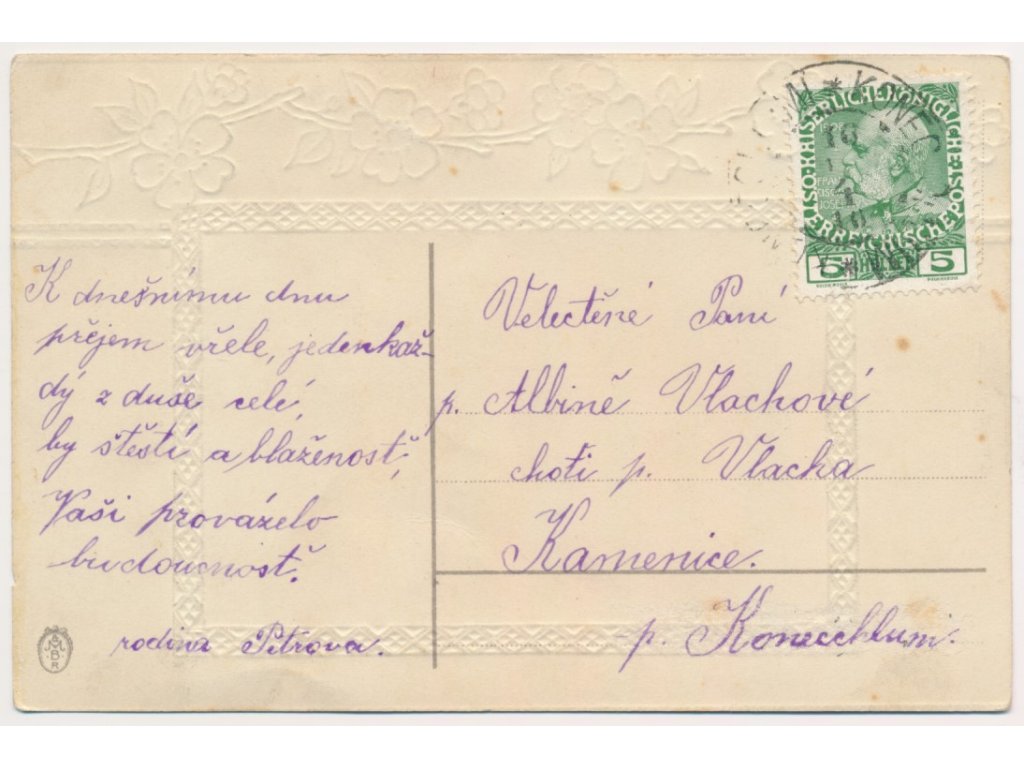 K dnešnímu dnu
přejem vřele, jedenkaž-
dý z duše celé,
by štěstí a blaženost,
Vaši provázelo
budoucnost.
rodina Petrova.
Velectěné Paní
p. Albině Vlachové
choti p. Vlacha
Kamenice.
p. Konecchlumí.
KAISERLICHE KÖNIGLICHE ÖSTERREICHISCHE POST
5 HELLER 5